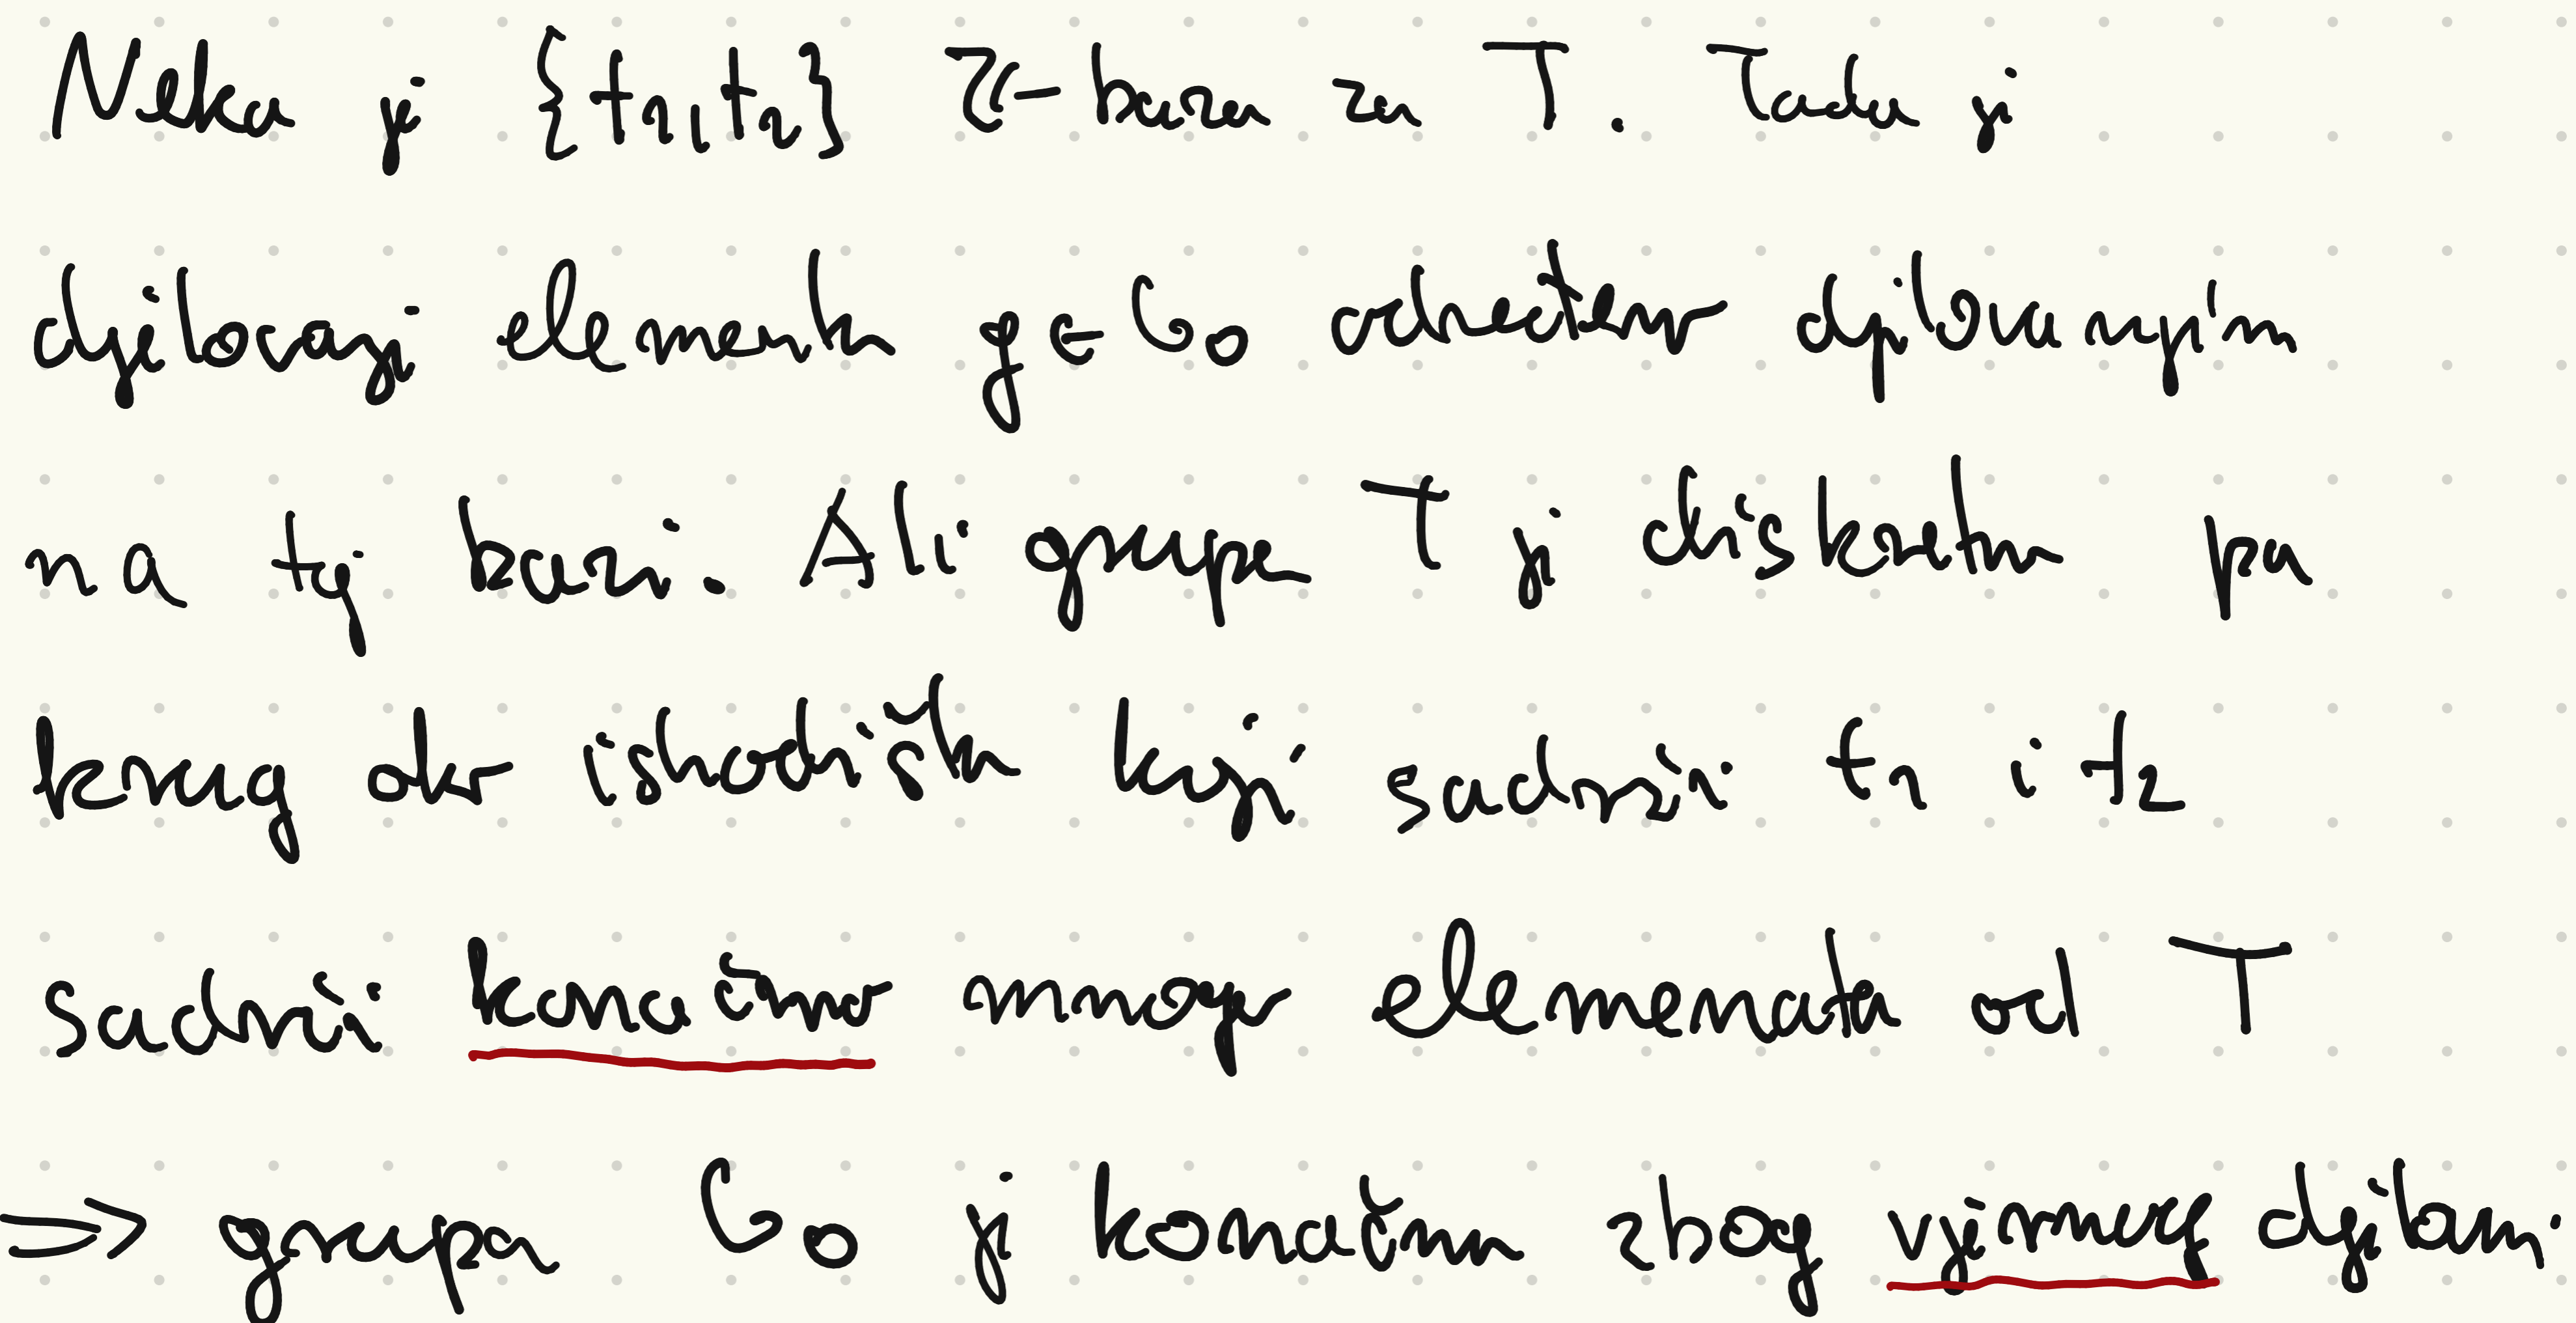 Neka je {t₁,t₂} ℤ-baza za T. Tada je
djelovanje elementa g ∈ G₀ određeno djelovanjem
na toj bazi. Ali grupa T je diskretna pa
krug oko ishodišta koji sadrži t₁ i t₂
sadrži konačno mnogo elemenata od T
⇒ grupa G₀ je konačna zbog vjernog djelovanj.